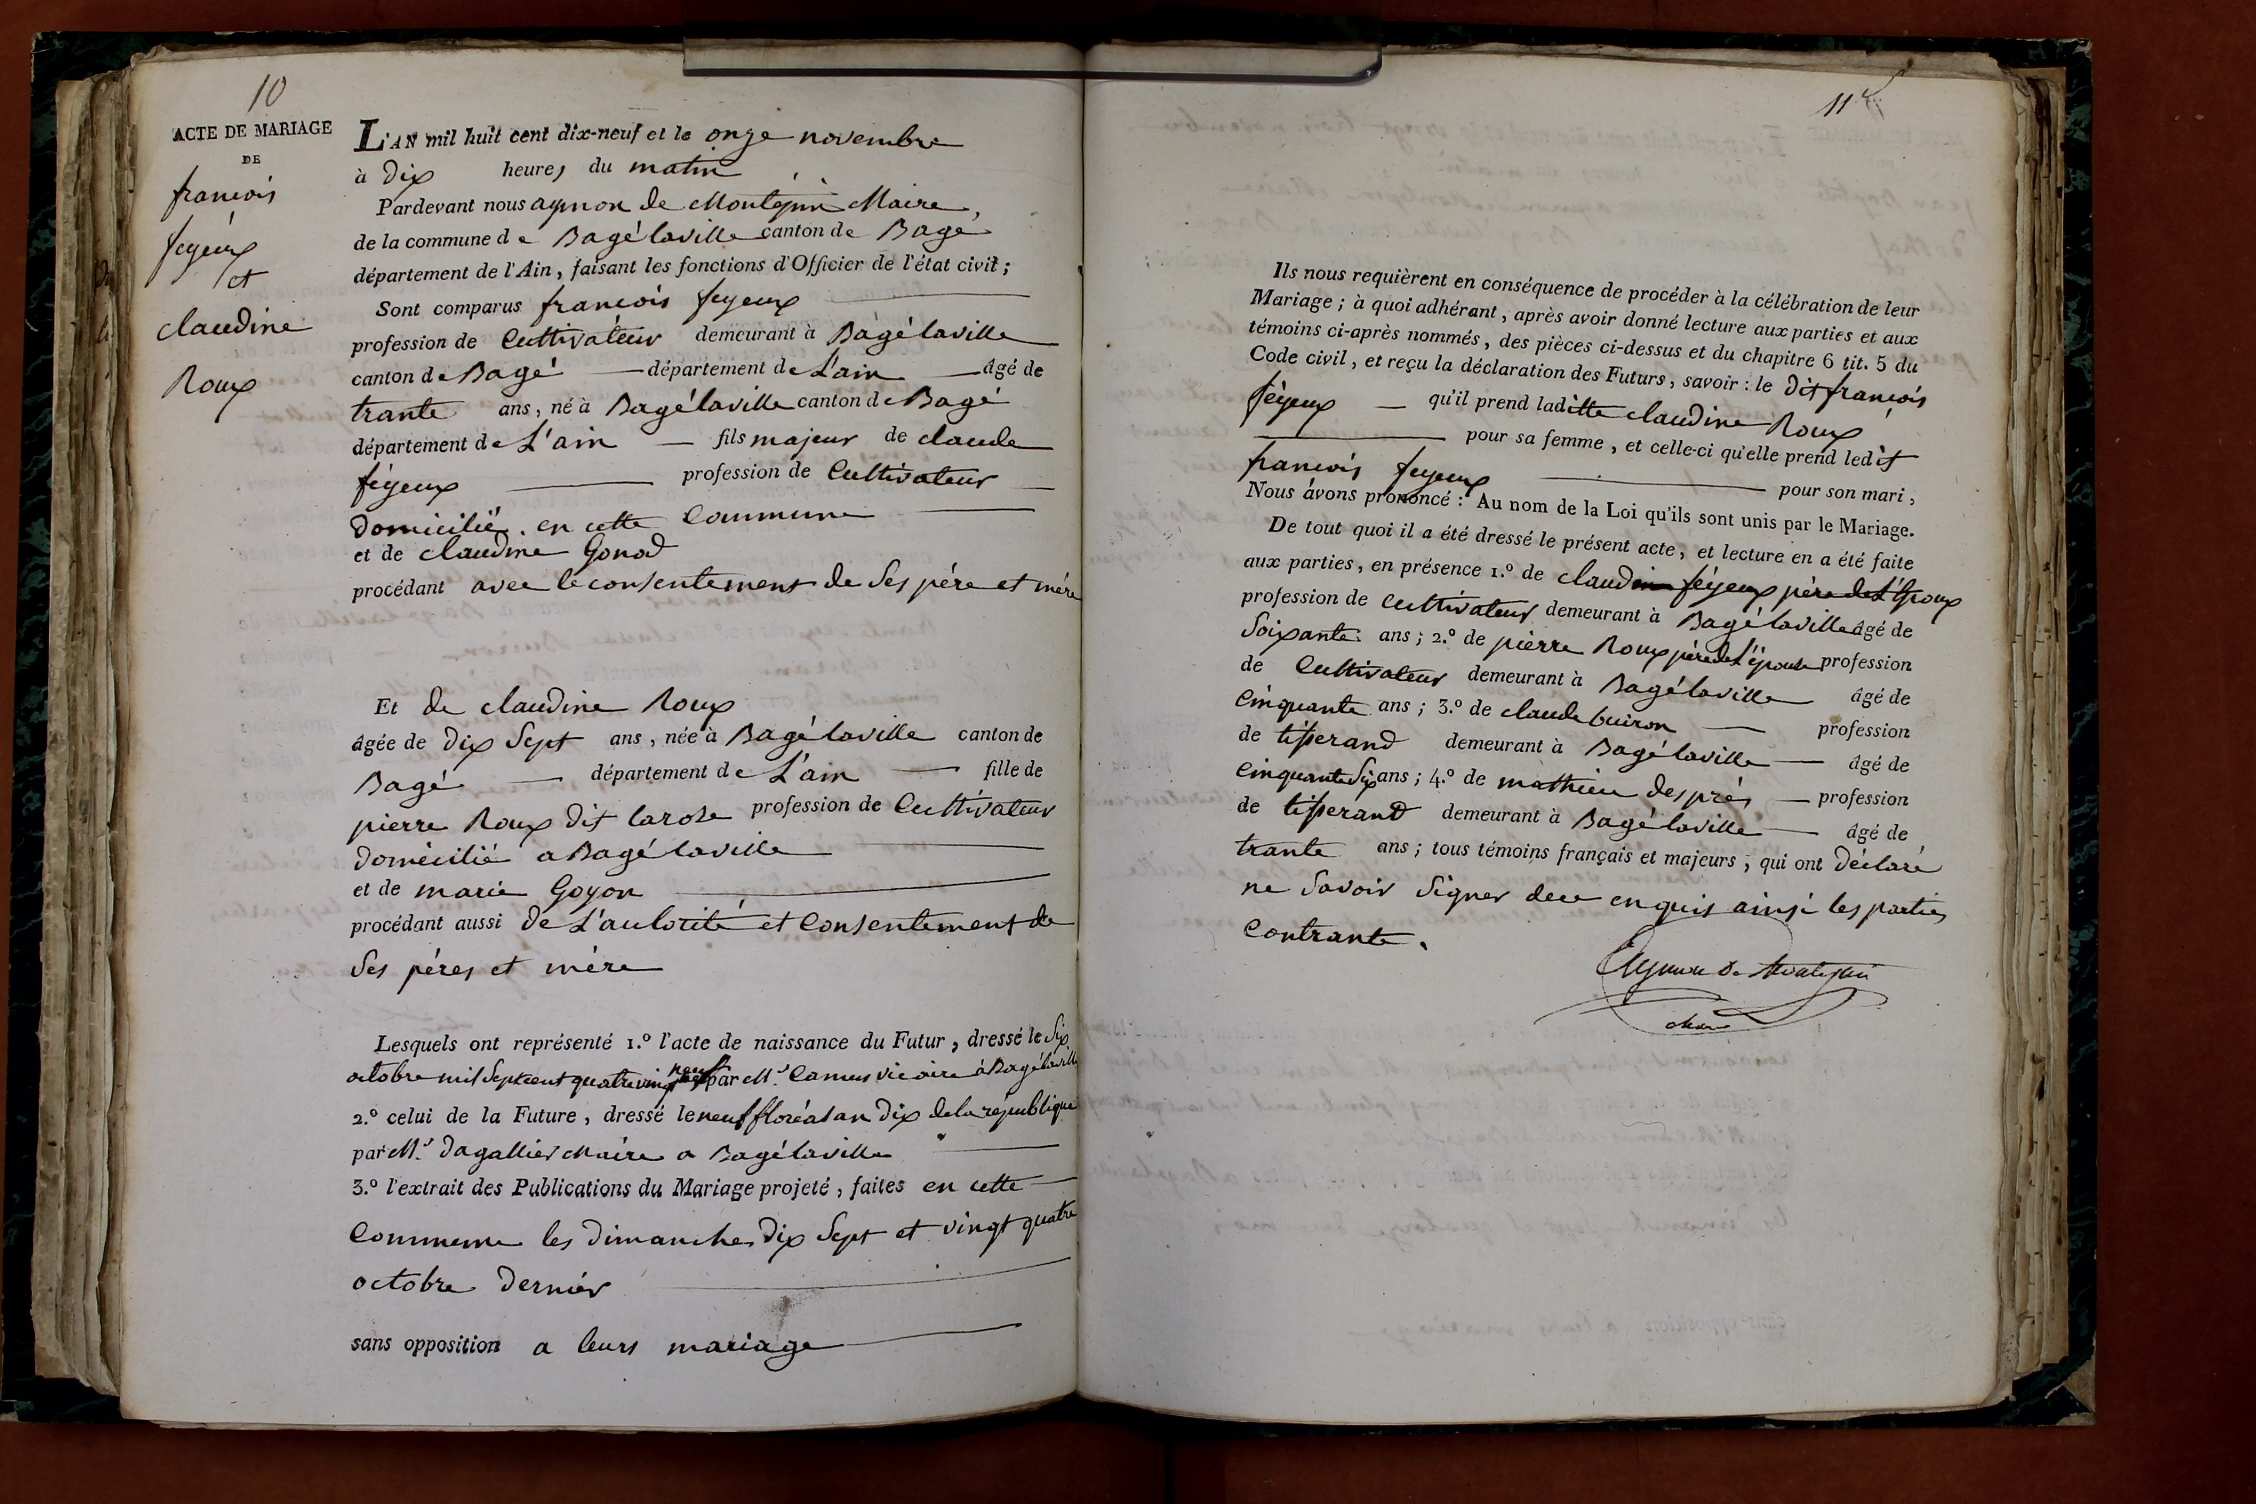 10
ACTE DE MARIAGE
DE
francois
feyeux
et
claudine
Roux
L'AN mil huit cent dix-neuf et le onze novembre
à dix heures du matin
Pardevant nous aymon de Montépin Maire,
de la commune de Bagé laville canton de Bagé
département de l'Ain, faisant les fonctions d'Officier de l'état civil;
Sont comparus francois feyeux
profession de Cultivateur demeurant à Bagé laville
canton de Bagé département de L'ain âgé de
trante ans, né à Bagé laville canton de Bagé
département de L'ain fils majeur de claude
féyeux profession de Cultivateur
domicilié en cette Commune
et de claudine Gonod
procédant avec le consentement de Ses père et mère
Et de claudine Roux
âgée de dix Sept ans, née à Bagé laville canton de
Bagé département de L'ain fille de
pierre Roux dit larose profession de Cultivateur
domicilié a Bagé laville
et de marie Goyon
procédant aussi de L'autorité et Consentement de
Ses pères et mère
Lesquels ont représenté 1.º l'acte de naissance du Futur, dressé le Six
octobre mil Sept cent quatre vingt neuf par Mr. Camus vicaire à Bagé laville
2.º celui de la Future, dressé le neuf floréal an dix de la république
par Mr. dagallier Maire a Bagé laville
3.º l'extrait des Publications du Mariage projeté, faites en cette
Commune les dimanches dix Sept et vingt quatre
octobre dernier
sans opposition a leurs mariage
11
Ils nous requièrent en conséquence de procéder à la célébration de leur
Mariage; à quoi adhérant, après avoir donné lecture aux parties et aux
témoins ci-après nommés, des pièces ci-dessus et du chapitre 6 tit. 5 du
Code civil, et reçu la déclaration des Futurs, savoir: le dit francois
féyeux qu'il prend laditte claudine Roux
pour sa femme, et celle-ci qu'elle prend ledit
francois feyeux pour son mari,
Nous avons prononcé: Au nom de la Loi qu'ils sont unis par le Mariage.
De tout quoi il a été dressé le présent acte, et lecture en a été faite
aux parties, en présence 1.º de claude féyeux père de L'Epoux
profession de Cultivateur demeurant à Bagé laville âgé de
Soixante ans; 2.º de pierre Roux père de L'épouse profession
de Cultivateur demeurant à Bagé laville âgé de
Cinquante ans; 3.º de claude buiron profession
de tisserand demeurant à Bagé laville âgé de
Cinquante Six ans; 4.º de mathieu després profession
de tisserand demeurant à Bagé laville âgé de
trante ans; tous témoins français et majeurs, qui ont déclaré
ne Savoir Signer de ce enquis ainsi les parties
Contrante.
Aymon de Montépin